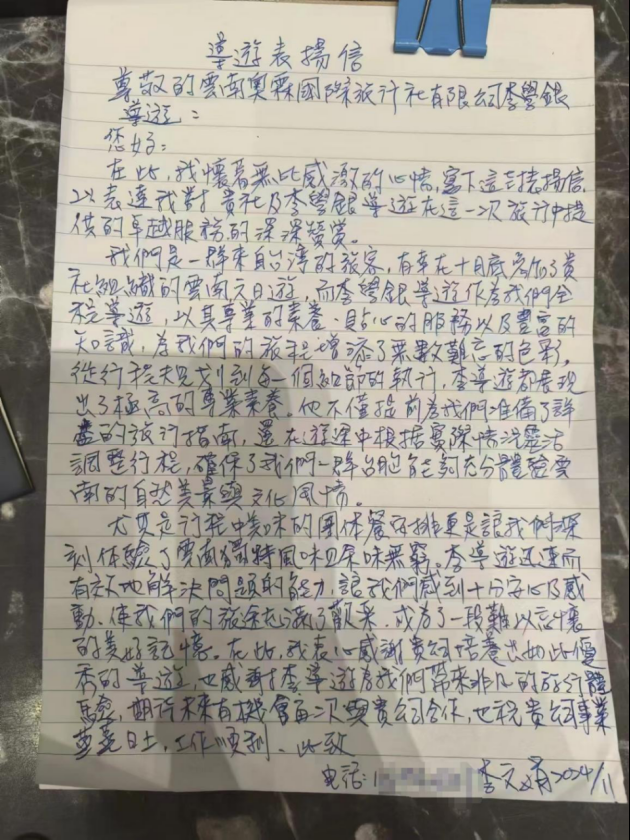 導遊表揚信
尊敬的雲南奧森國際旅行社有限公司李學銀
導遊：
您好：
在此，我懷著無比感激的心情，寫下這封表揚信，
以表達我對貴社及李學銀導遊在這一次旅行中提
供的卓越服務的深深讚賞。
我們是一群來自台灣的旅客，有幸在十月底參加了貴
社組織的雲南六日遊，而李學銀導遊作為我們全
程導遊，以其專業的素養、貼心的服務以及豐富的
知識，為我們的旅程增添了無數難忘的色彩。
從行程規划到每一個細節的執行，李導遊都展現
出了極高的專業素養。他不僅提前為我們準備了詳
盡的旅行指南，還在遊途中根据實際情況靈活
調整行程，確保了我們一群台胞能夠充分體驗雲
南的自然美景與文化風情。
尤其是行程中美味的團体餐安排更是讓我們深
刻体驗了雲南獨特風味且回味無窮。李導遊迅速而
有效地解決問題的能力，讓我們感到十分安心及感
動、使我們的旅途充滿了歡樂，成為了一段難以忘懷
的美好記憶。在此，我衷心感謝貴公司培養出如此優
秀的導遊，也感謝李導遊為我們帶來非凡的旅行體
驗，期待未來有機會再次與貴公司合作，也祝貴公司事業
蒸蒸日上，工作順利、此致
电話：1 李文 2024/11